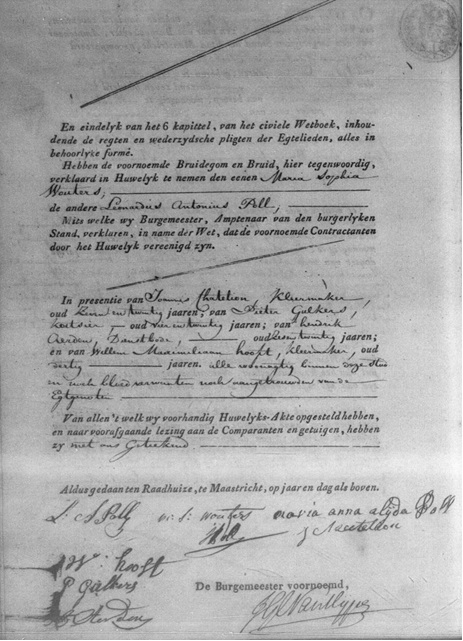 En eindelyk van het 6 kapittel, van het civiele Wetboek, inhou-
dende de regten en wederzydsche pligten der Egtelieden, alles in
behoorlyze formé.
Hebben de voornoemde Bruidegom en Bruid, hier tegenwoordig,
verklaard in Huwelyk te nemen den eenen Maria Sophia
Wouters;
de andere Leonardus Antonius Poll;
Mits welke wy Burgemeester, Amptenaar van den burgerlyken
Stand, verklaren, in name der Wet, dat de voornoemde Contractanten
door het Huwelyk vereenigd zyn.
In presentie van Joannes Chatelien, Kleermaker,
oud jaaren; van Pieter Galkers,
oud jaaren; van hendrik
oud jaaren;
en van Willem Maximiliaan hooft, Kleermaker, oud
dertig jaaren. alle woonagtig binnen deze stad
en noch bloedverwanten noch aangetrouwden van de
Egtgenoten
Van allen't welk wy voorhandig Huwelyks-Akte opgesteld hebben,
en naar voorafgaande lezing aan de Comparanten en getuigen, hebben
zy met ons Geteekend
Aldus gedaan ten Raadhuize, te Maastricht, op jaar en dag als boven.
L: A Poll m: s: wouters maria anna alyda Poll
W: hooft
P Galkers
De Burgemeester voornoemd,